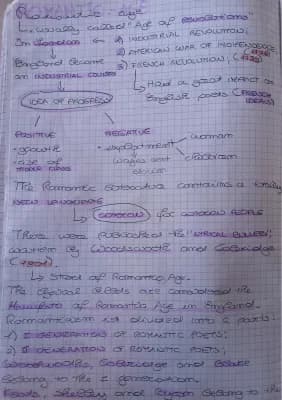 ROMANTIC AGE
Romantic Age
↳ usually called "Age of REVOLUTIONS"
1) INDUSTRIAL REVOLUTION;
England became 2) AMERICAN WAR OF INDEPENDENCE;
an INDUSTRIAL COUNTRY 3) FRENCH REVOLUTION;
↳ Had a great impact on
IDEA OF PROGRESS English poets (FRENCH
IDEALS)
POSITIVE NEGATIVE
• growth • exploitment woman
• rise of children
MIDDLE CLASS wages and
The Romantic literature contains a totally
NEW LANGUAGE
↳ COMMON for COMMON PEOPLE
This was published in "LYRICAL BALLADS";
written by Wordsworth and Coleridge
↳ Start of Romantic Age.
The Lyrical Ballads are considered the
Manifesto of Romantic Age in England.
Romanticism is divided into 2 parts:
1) I GENERATION OF ROMANTIC POETS;
2) II GENERATION OF ROMANTIC POETS;
Wordsworth, Coleridge and Blake
belong to the I generation.
Keats, Shelley and Byron belong to the